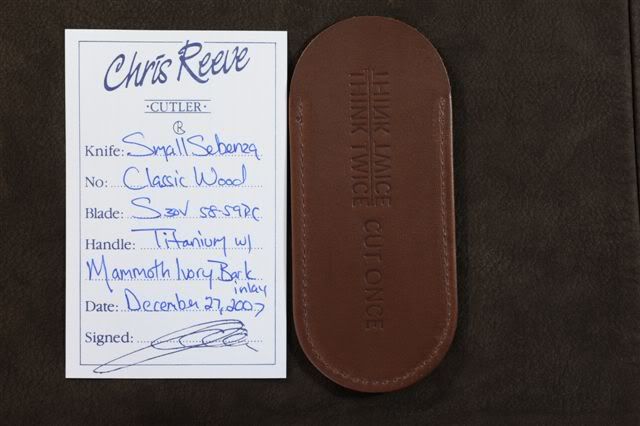 Chris Reeve
·CUTLER·
®
Knife: Small Sebenza
No: Classic Wood
Blade: S30V 58-59RC
Handle: Titanium w/
Mammoth Ivory Bark
inlay
Date: December 27, 2007
Signed:
THINK TWICE
THINK TWICE CUT ONCE